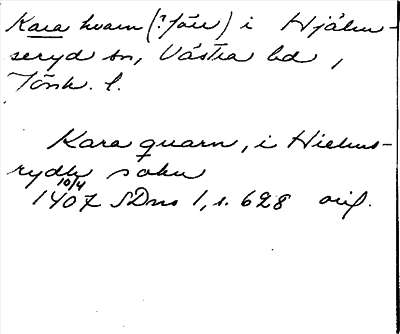 Kara kvarn (? Jäu) i Hjälm-
seryd sn, Västra hd,
Jönk. l.
Kara quarn, i Hielms-
rydh sokn
10/4
1407 SDns 1, s. 628 orig.